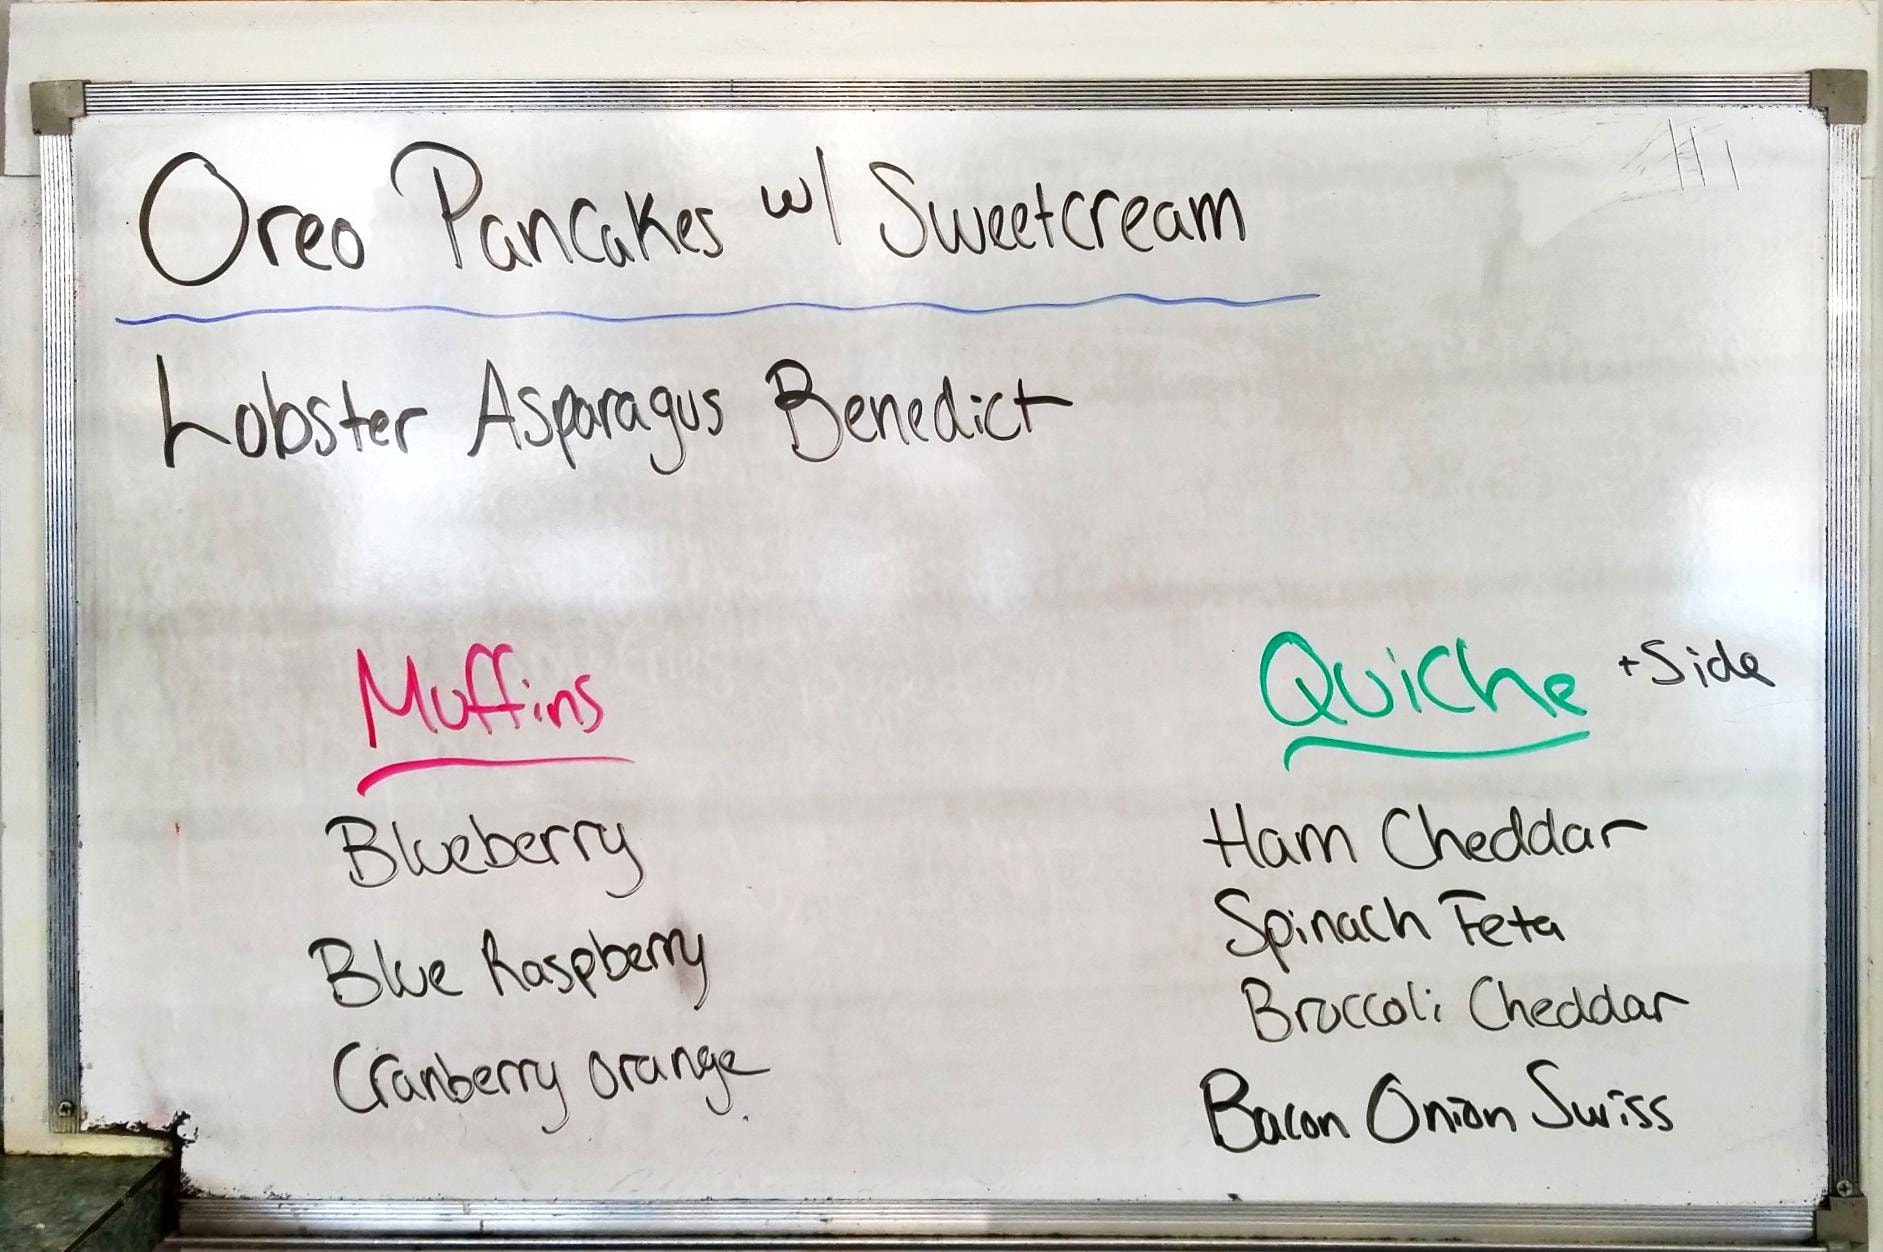 Oreo Pancakes w/ Sweetcream
Lobster Asparagus Benedict
Muffins
Blueberry
Blue Raspberry
Cranberry orange
Quiche +Side
Ham Cheddar
Spinach Feta
Broccoli Cheddar
Bacon Onion Swiss